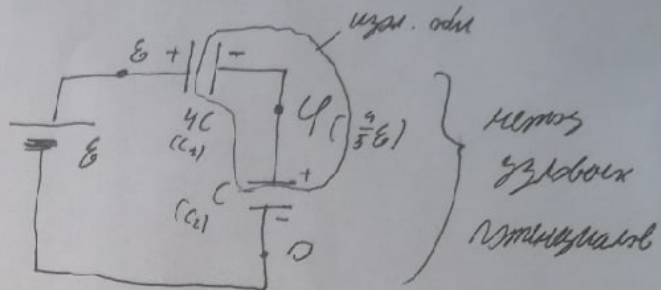 изол. обл
ε + -
4C
(C₁)
φ (4/5 ε)
ε
C
(C₂)
+
-
0
метод
узловых
потенциалов